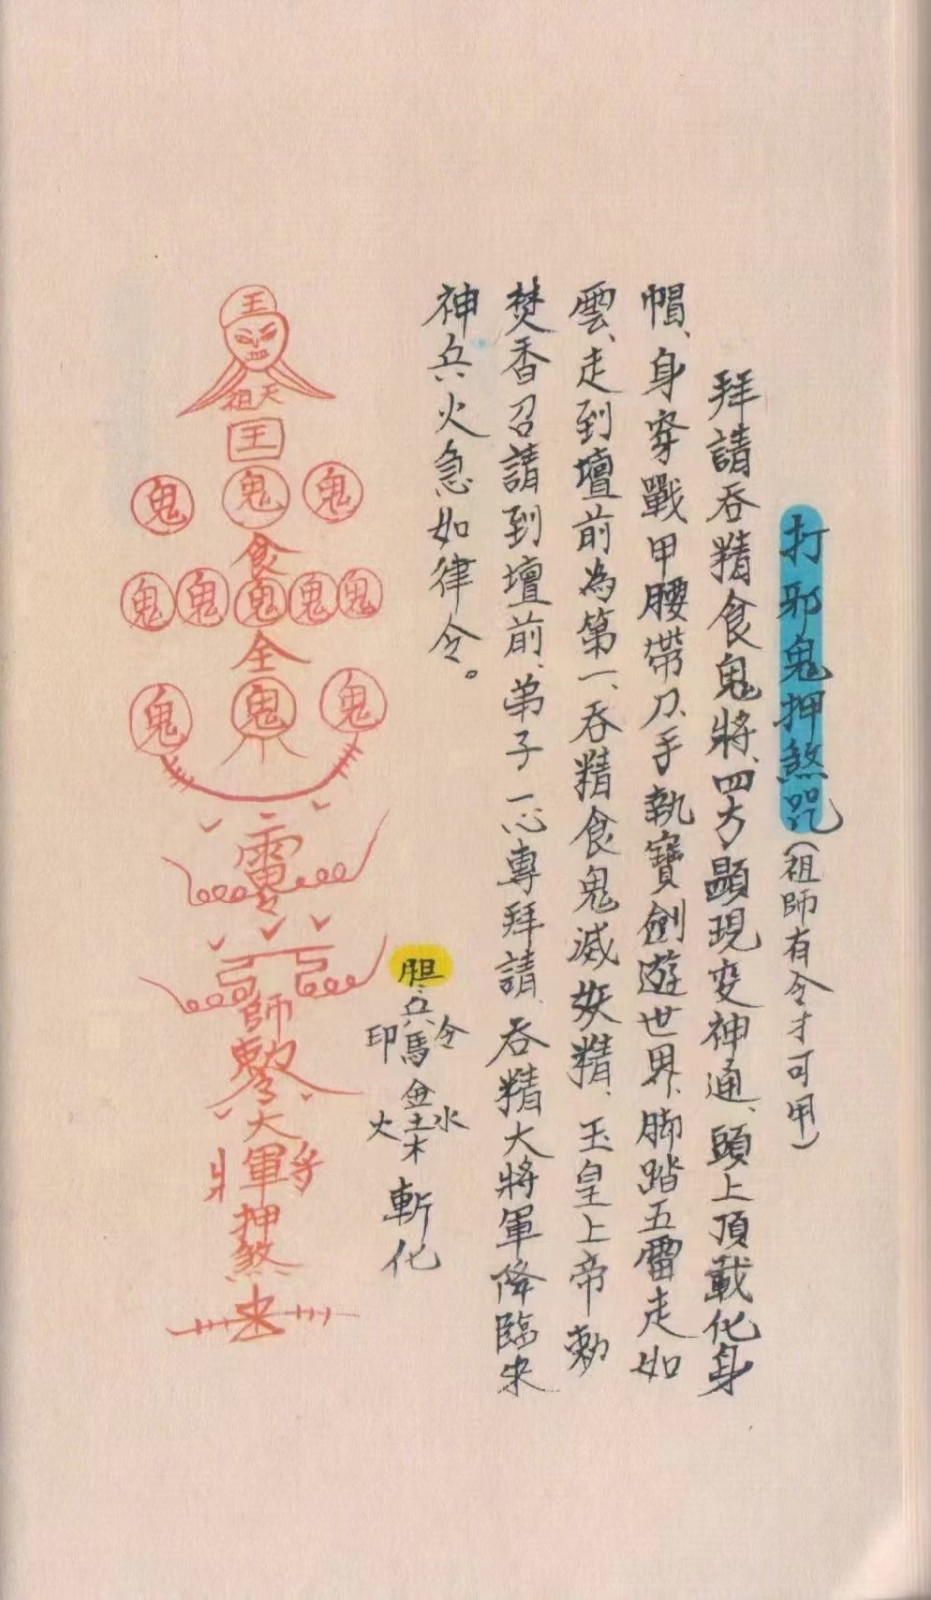 打邪鬼押煞咒(祖師有令才可用)
拜請吞精食鬼將、四方顯現变神通、頭上頂載化身
帽、身穿戰甲腰帶刀、手執寶劍遊世界、脚踏五雷走如
雲、走到壇前為第一、吞精食鬼滅妖精、玉皇上帝勅
焚香召請到壇前、弟子一心專拜請、吞精大將軍降臨來
神兵火急如律令。
胆
兵
印馬令
金
火土水
木
斬化
王
祖天
王
鬼鬼鬼
食
鬼鬼鬼鬼鬼
全
鬼鬼鬼
師
大
將軍
押
煞